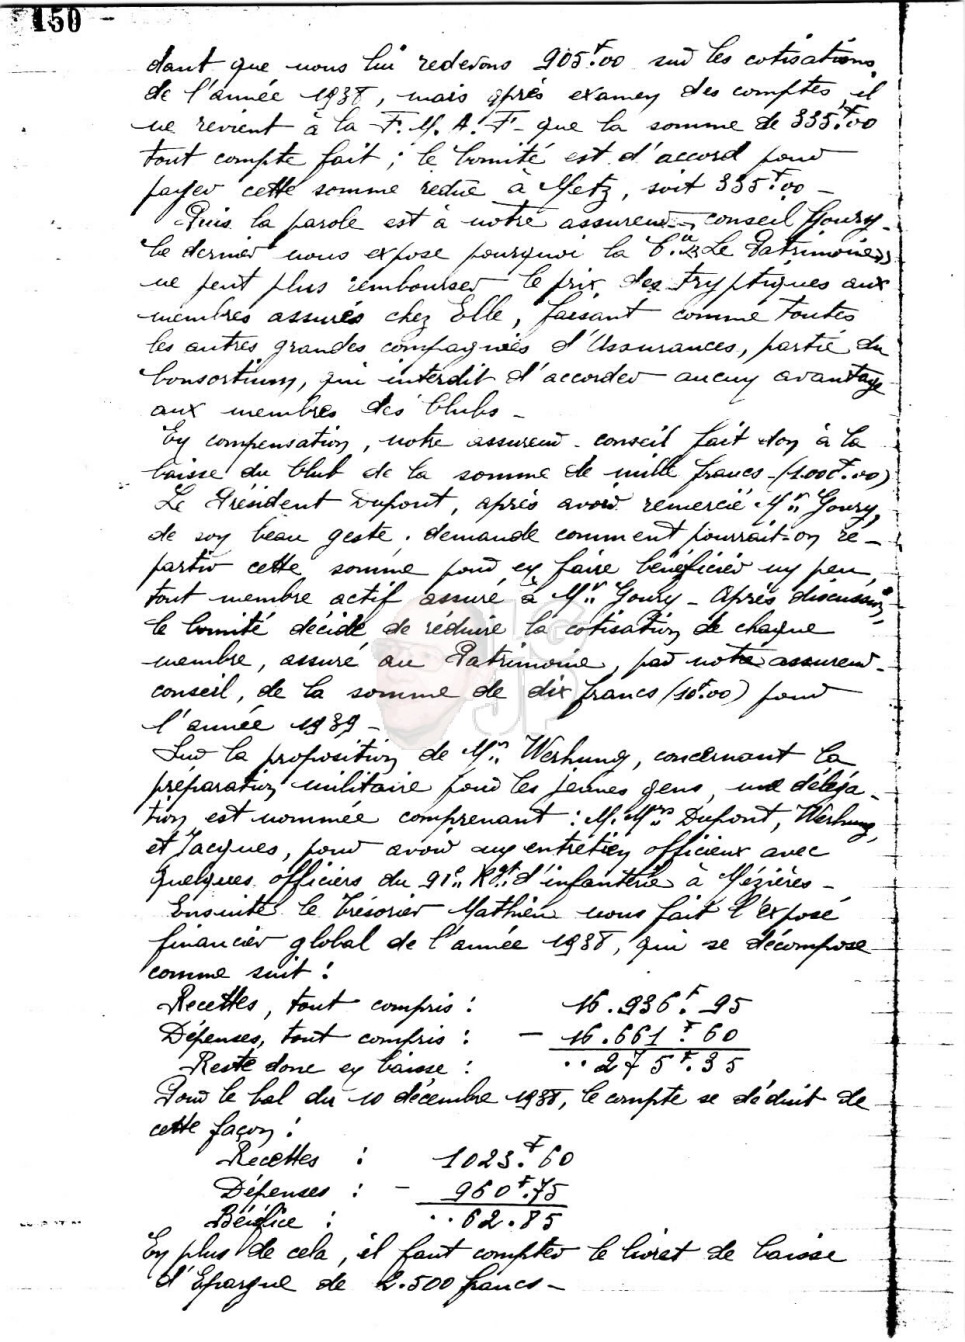 150
dant que nous lui redevons 905.F00 sur les cotisations
de l'année 1938, mais après examen des comptes, il
ne revient à la F.M.A.F. que la somme de 335.F00
tout compte fait ; le Comité est d'accord pour
payer cette somme redûe à Metz, soit 335.F00 -
Puis la parole est à notre assureur-conseil Goury -
Ce dernier nous expose pourquoi la Cie « Le Patrimoine »
ne peut plus rembourser le prix des tryptiques aux
membres assurés chez Elle, faisant comme toutes
les autres grandes compagnies d'Assurances, partie du
Consortium, qui interdit d'accorder aucun avantage
aux membres des Clubs -
En compensation, notre assureur-conseil fait don à la
Caisse du Club de la somme de mille francs - (1.000F.00)
Le Président Dupont, après avoir remercié Mr. Goury,
de son beau geste, demande comment pourrait-on ré-
partir cette somme pour en faire bénéficier un peu,
tout membre actif assuré à Mr. Goury - Après discussion,
le Comité décide de réduire la cotisation de chaque
membre, assuré au Patrimoine, par notre assureur-
conseil, de la somme de dix francs (10F.00) pour
l'année 1939 -
LG
JP
Sur la proposition de Mr. Werhung, concernant la
préparation militaire pour les jeunes gens, une déléga-
tion est nommée comprenant : M.Mrs Dupont, Werhung,
et Jacques, pour avoir un entretien officieux avec
quelques officiers du 91e. Rgt. d'infanterie à Mézières -
Ensuite le Trésorier Mathieu nous fait l'exposé
financier global de l'année 1938, qui se décompose
comme suit :
Recettes, tout compris : 16.936F.95
Dépenses, tout compris : - 16.661F.60
Reste donc en Caisse : ..275F.35
Pour le bal du 10 décembre 1938, le compte se déduit de
cette façon :
Recettes : 1023.F60
Dépenses : - 960F.75
Bénéfice : ..62.85
En plus de cela, il faut compter le livret de Caisse
d'Epargne de 2.500 francs -